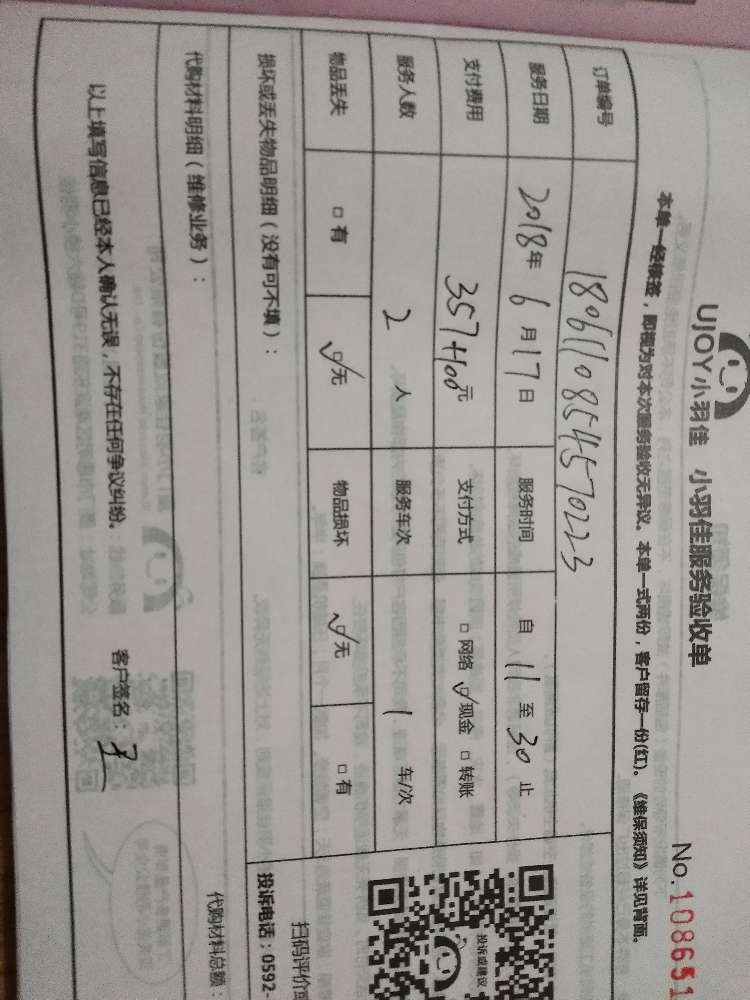 UJOY小羽佳 小羽佳服务验收单
No.108651
本单一经核签，即视为对本次服务验收无异议。本单一式两份，客户留存一份(红)。《维保须知》详见背面。
订单编号 1806110854570223
服务日期 2018年 6月17日 服务时间 自 11 至 30 止
支付费用 357+100元 支付方式 □网络 ☑现金 □转账
服务人数 2 人 服务车次 1 车/次
物品丢失 □有 ☑无 物品损坏 ☑无 □有
损坏或丢失物品明细（没有可不填）：
代购材料明细（维修业务）：
代购材料总额：
以上填写信息已经本人确认无误，不存在任何争议纠纷。
客户签名：
投诉或建议
扫码评价
投诉电话：0592-